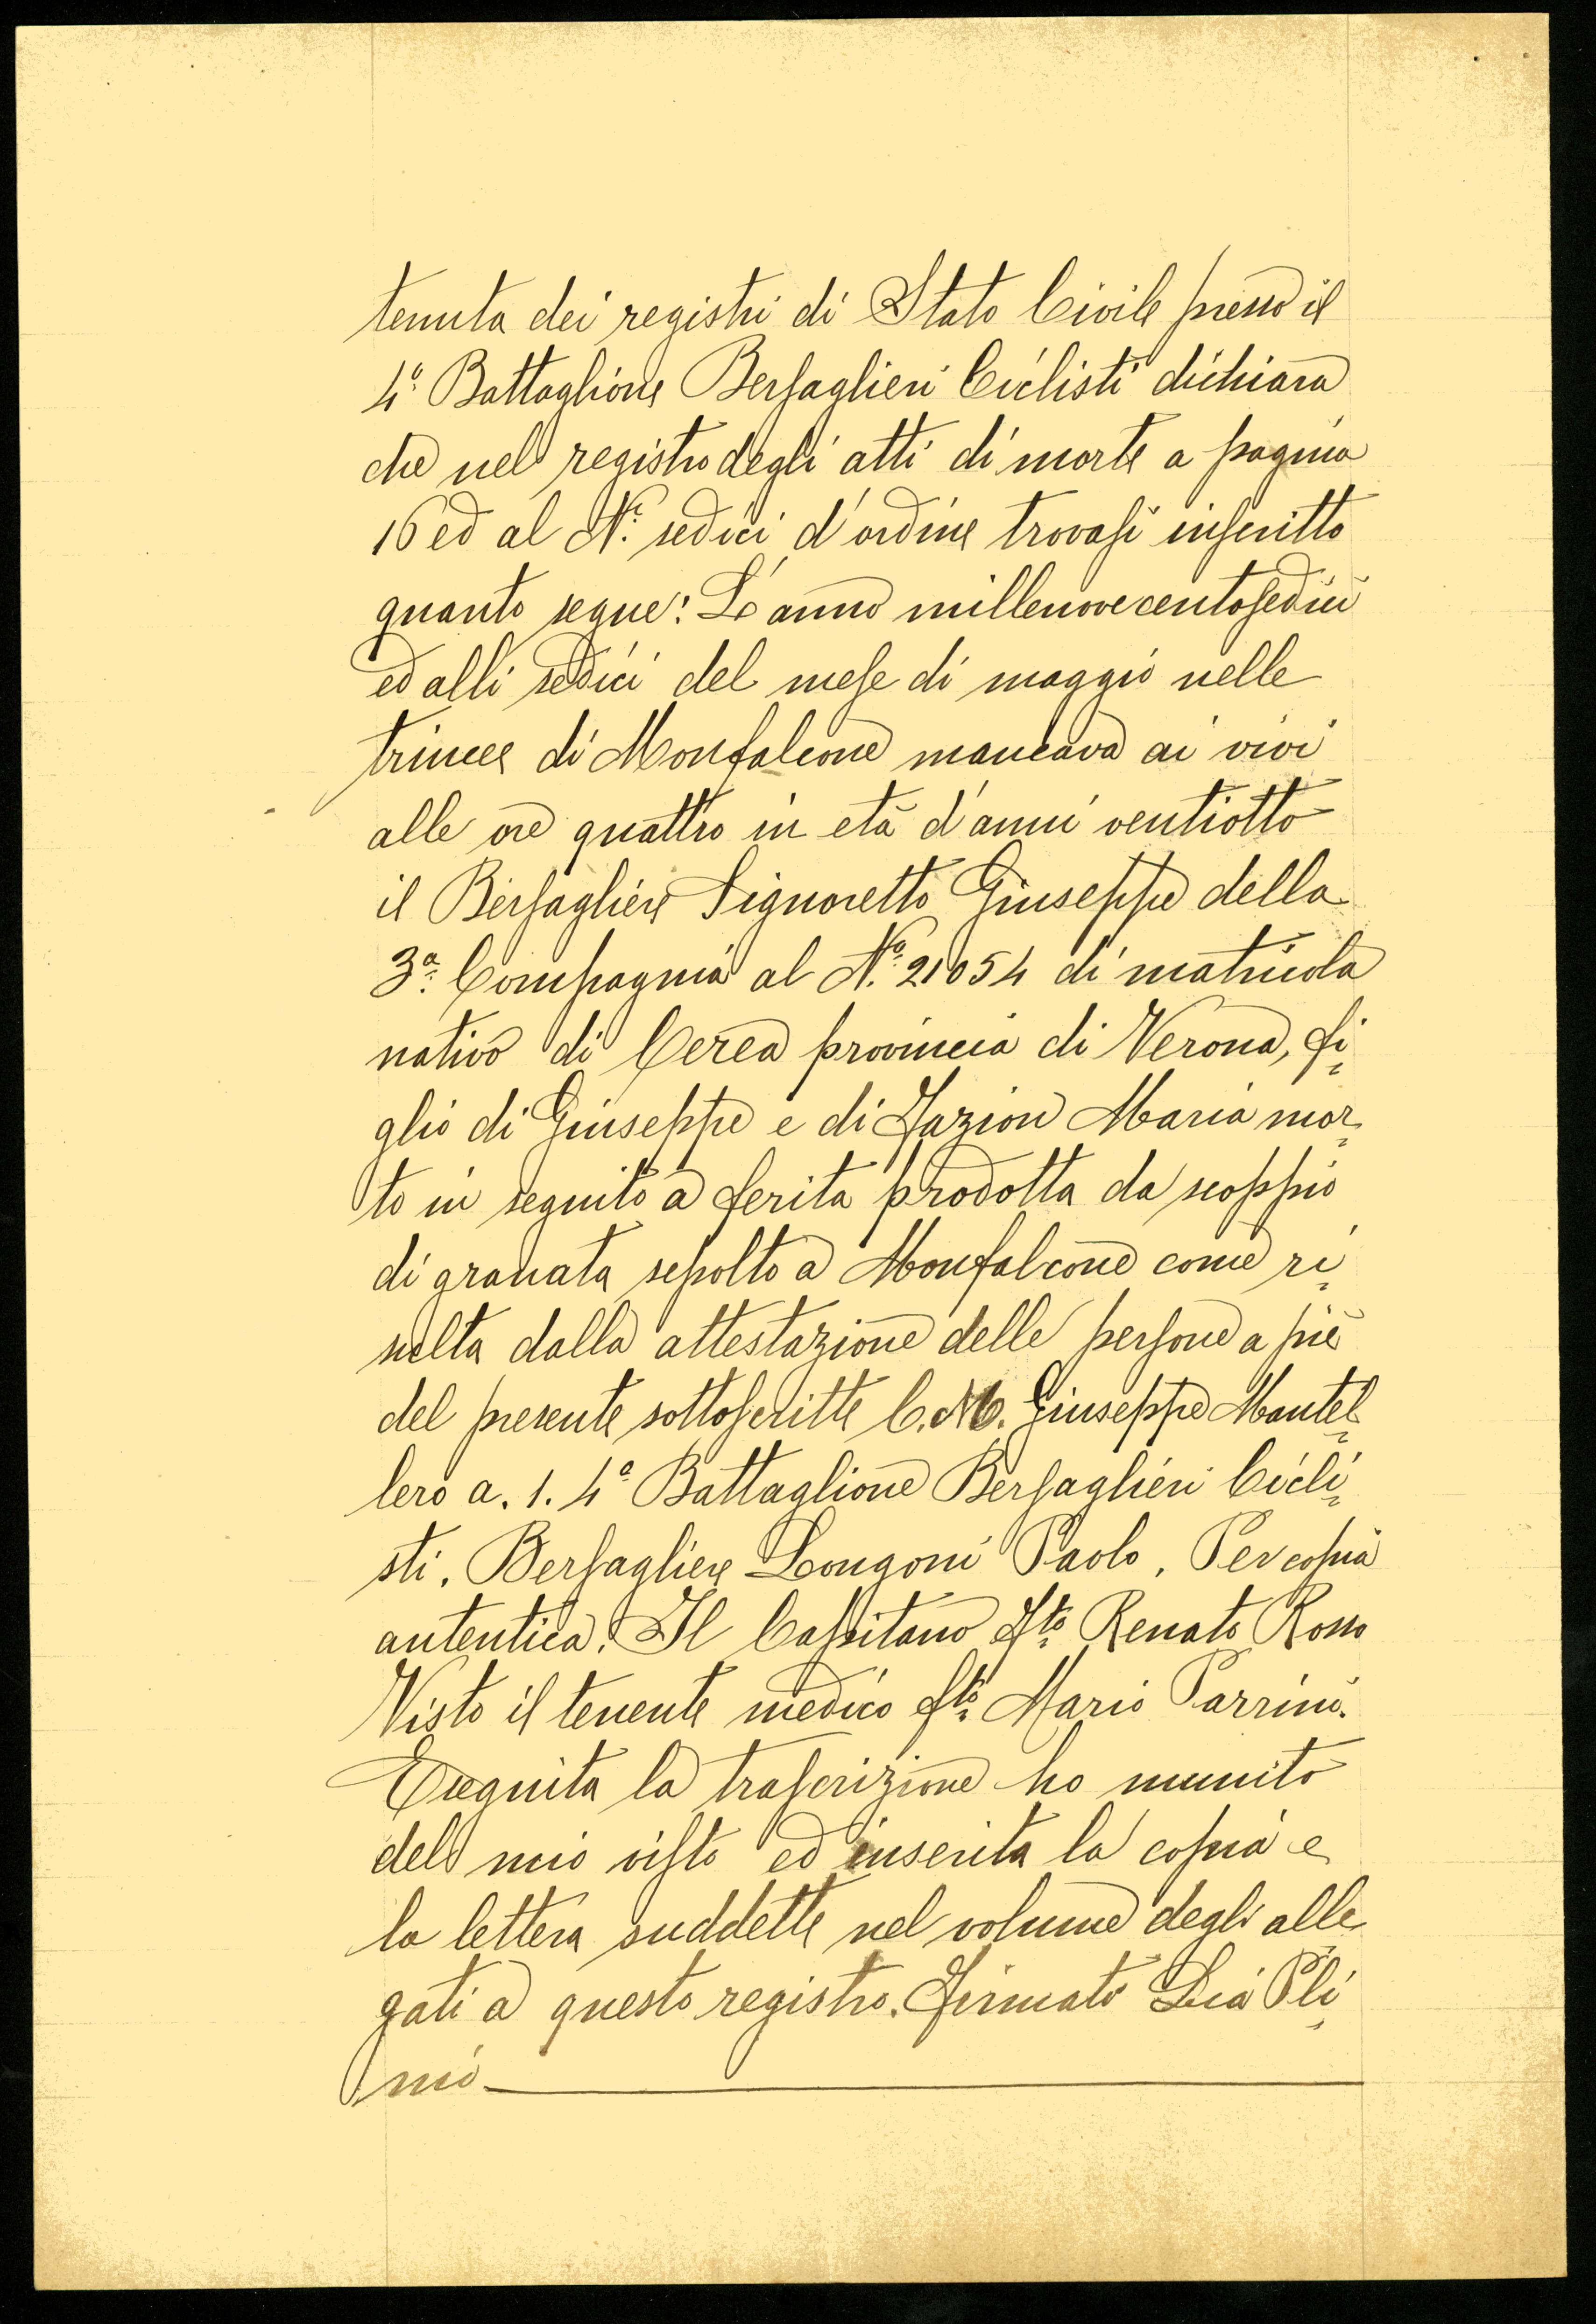 tenuta dei registri di Stato Civile presso il
4º Battaglione Bersaglieri Ciclisti dichiara
che nel registro degli atti di morte a pagina
16 ed al Nº sedici d'ordine trovasi inscritto
quanto segue: L'anno millenovecentosedici
ed alli sedici del mese di maggio nelle
trincee di Monfalcone mancava ai vivi
alle ore quattro in età d'anni ventiotto
il Bersagliere Signoretto Giuseppe della
3ª Compagnia al Nº 21054 di matricola
nativo di Cerea provincia di Verona, fi=
glio di Giuseppe e di Fazion Maria mor=
to in seguito a ferita prodotta da scoppio
di granata sepolto a Monfalcone come ri=
sulta dalla attestazione delle persone a piè
del presente sottoscritte C.M. Giuseppe Mantel=
lero a. 1. 4º Battaglione Bersaglieri Cicli=
sti. Bersagliere Longoni Paolo. Per copia
autentica. Il Capitano Fto Renato Rosso
Visto il tenente medico fto Mario Parrini.
Eseguita la trascrizione ho munito
del mio visto ed inserita la copia e
la lettera suddette nel volume degli alle=
gati a questo registro. Firmato Lia Pli=
nio